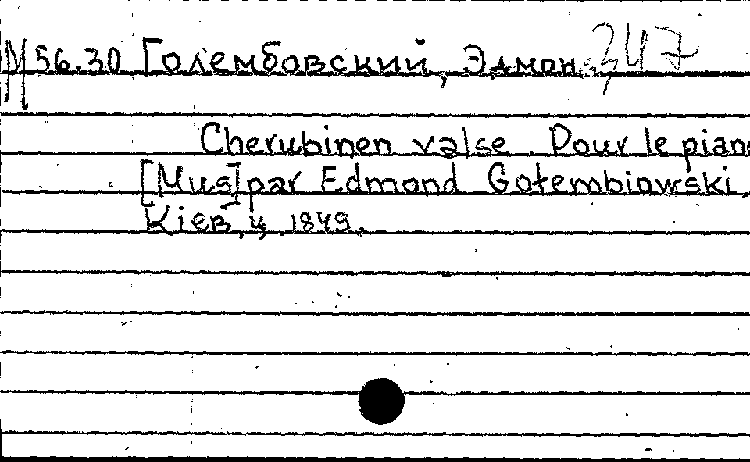 М 56.30 Голембовский, Эдмон 347
Cherubinen valse. Pour le pian
[Mus] par Edmond Gołembiowski.
Kieв, ц, 1849.